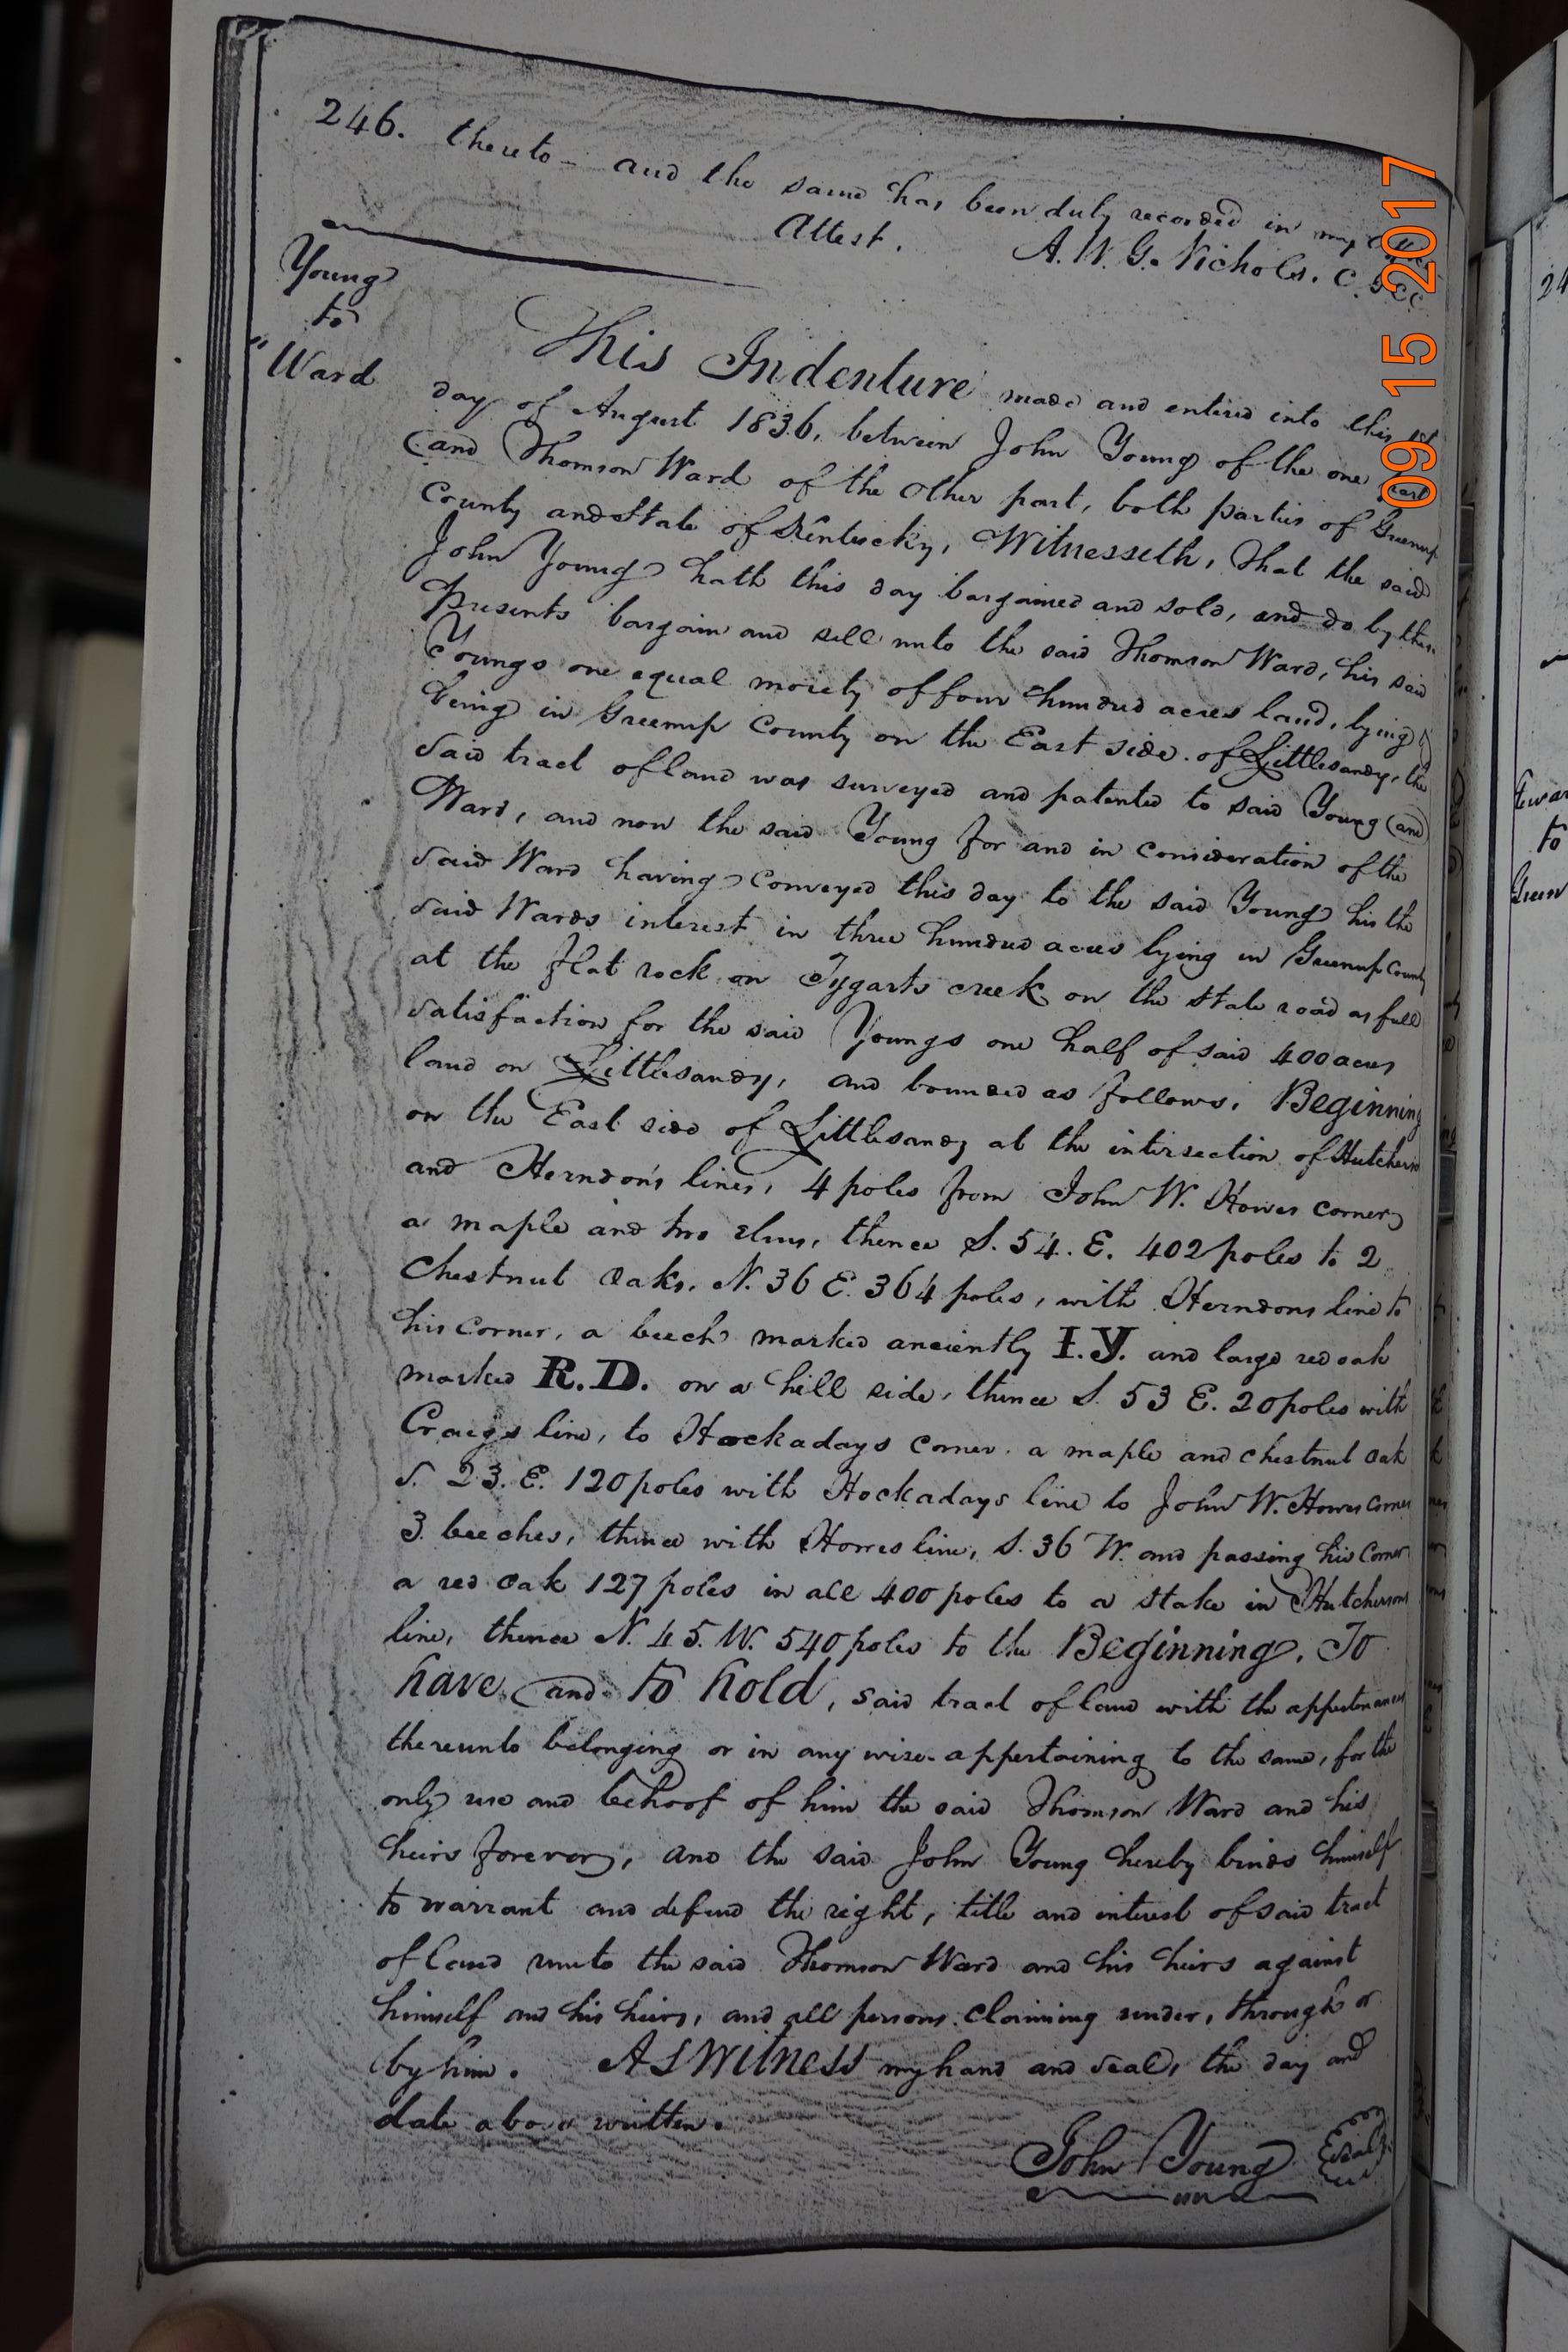 246. thereto - and the same has been duly recorded in my office
Attest. A. W. G. Nichols. C. G. C. C.
Young
to
"Ward
This Indenture made and entered into this 1st
day of August 1836, between John Young of the one part
and Thomson Ward of the other part, both parties of Greenup
County and State of Kentucky, Witnesseth, That the said
John Young hath this day bargained and sold, and do by these
presents bargain and sell unto the said Thomson Ward, his said
Youngs one equal moiety of four hundred acres land, lying &
being in Greenup County on the East side of Littlesandy, the
said tract of land was surveyed and patented to said Young and
Ward, and now the said Young for and in consideration of the
said Ward having conveyed this day to the said Young his the
said Wards interest in three hundred acres lying in Greenup County
at the flat rock on Tygarts creek on the State road as full
satisfaction for the said Youngs one half of said 400 acres
land on Littlesandy, and bounded as follows, Beginning
on the East side of Littlesandy at the intersection of Hutchersons
and Herndon's lines, 4 poles from John W. Howes corner
a maple and two elms, thence S. 54. E. 402 poles to 2
Chestnut Oaks. N. 36 E. 364 poles, with Herndons line to
his corner, a beech marked anciently I.Y. and large red oak
marked R.D. on a hill side, thence S. 53 E. 20 poles with
Craigs line, to Hockadays corner. a maple and chestnut oak
S. 23. E. 120 poles with Hockadays line to John W. Howes corner
3 beeches, thence with Howes line, S. 36 W. and passing his corner
a red oak 127 poles in all 400 poles to a stake in Hutchersons
line, thence N. 45. W. 540 poles to the Beginning. To
have and to hold, said tract of land with the appertenances
thereunto belonging or in any wise appertaining to the same, for the
only use and behoof of him the said Thomson Ward and his
heirs forever, and the said John Young hereby binds himself
to warrant and defend the right, title and interest of said tract
of land unto the said Thomson Ward and his heirs against
himself and his heirs, and all persons claiming under, through or
by him. As Witness my hand and seal, the day and
date above written.
John Young Seal
09 15 2017
24
to
Green